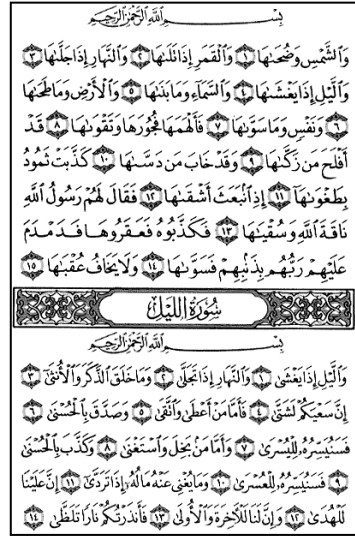 بِسْمِ اللَّهِ الرَّحْمَٰنِ الرَّحِيمِ
وَالشَّمْسِ وَضُحَىٰهَا ١ وَالْقَمَرِ إِذَا تَلَىٰهَا ٢ وَالنَّهَارِ إِذَا جَلَّىٰهَا ٣
وَالَّيْلِ إِذَا يَغْشَىٰهَا ٤ وَالسَّمَاءِ وَمَا بَنَىٰهَا ٥ وَالْأَرْضِ وَمَا طَحَىٰهَا
٦ وَنَفْسٍ وَمَا سَوَّىٰهَا ٧ فَأَلْهَمَهَا فُجُورَهَا وَتَقْوَىٰهَا ٨ قَدْ
أَفْلَحَ مَن زَكَّىٰهَا ٩ وَقَدْ خَابَ مَن دَسَّىٰهَا ١٠ كَذَّبَتْ ثَمُودُ
بِطَغْوَىٰهَا ١١ إِذِ انبَعَثَ أَشْقَىٰهَا ١٢ فَقَالَ لَهُمْ رَسُولُ اللَّهِ
نَاقَةَ اللَّهِ وَسُقْيَٰهَا ١٣ فَكَذَّبُوهُ فَعَقَرُوهَا فَدَمْدَمَ
عَلَيْهِمْ رَبُّهُم بِذَنبِهِمْ فَسَوَّىٰهَا ١٤ وَلَا يَخَافُ عُقْبَٰهَا ١٥
سُورَةُ اللَّيْلِ
بِسْمِ اللَّهِ الرَّحْمَٰنِ الرَّحِيمِ
وَالَّيْلِ إِذَا يَغْشَىٰ ١ وَالنَّهَارِ إِذَا تَجَلَّىٰ ٢ وَمَا خَلَقَ الذَّكَرَ وَالْأُنثَىٰ ٣
إِنَّ سَعْيَكُمْ لَشَتَّىٰ ٤ فَأَمَّا مَنْ أَعْطَىٰ وَاتَّقَىٰ ٥ وَصَدَّقَ بِالْحُسْنَىٰ ٦
فَسَنُيَسِّرُهُ لِلْيُسْرَىٰ ٧ وَأَمَّا مَن بَخِلَ وَاسْتَغْنَىٰ ٨ وَكَذَّبَ بِالْحُسْنَىٰ
٩ فَسَنُيَسِّرُهُ لِلْعُسْرَىٰ ١٠ وَمَا يُغْنِي عَنْهُ مَالُهُ إِذَا تَرَدَّىٰ ١١ إِنَّ عَلَيْنَا
لَلْهُدَىٰ ١٢ وَإِنَّ لَنَا لَلْآخِرَةَ وَالْأُولَىٰ ١٣ فَأَنذَرْتُكُمْ نَارًا تَلَظَّىٰ ١٤